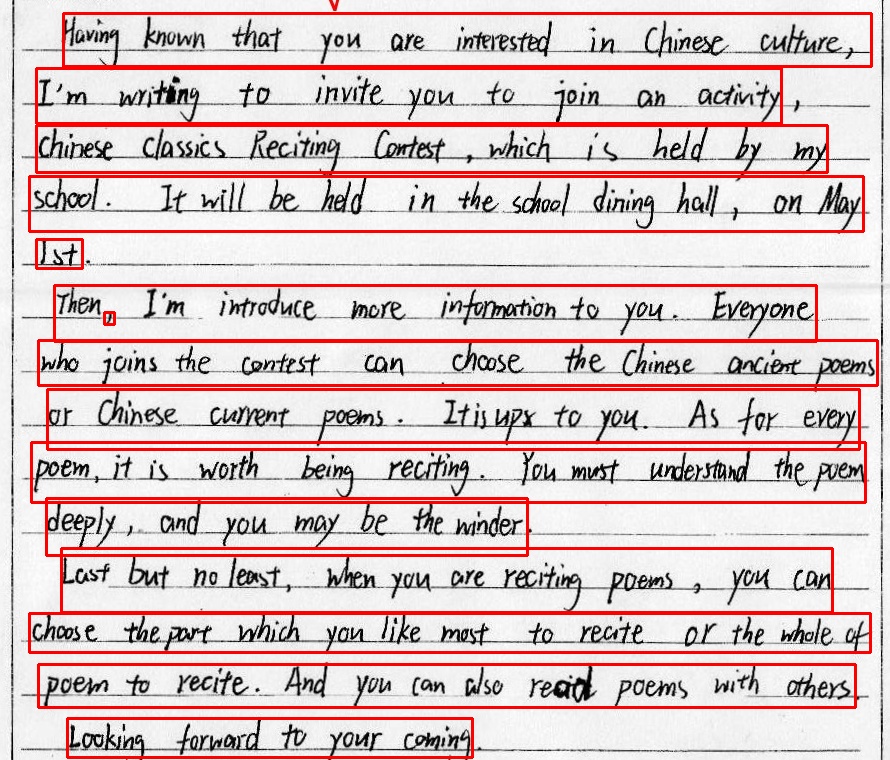 Having known that you are interested in Chinese culture,
I'm writing to invite you to join an activity,
Chinese classics Reciting Contest, which is held by my
school. It will be held in the school dining hall, on May
1st.
Then, I'm introduce more information to you. Everyone
who joins the contest can choose the Chinese ancient poems
or Chinese current poems. It is up to you. As for every
poem, it is worth being reciting. You must understand the poem
deeply, and you may be the winder.
Last but no least, when you are reciting poems, you can
choose the part which you like most to recite or the whole of
poem to recite. And you can also read poems with others.
Looking forward to your coming.